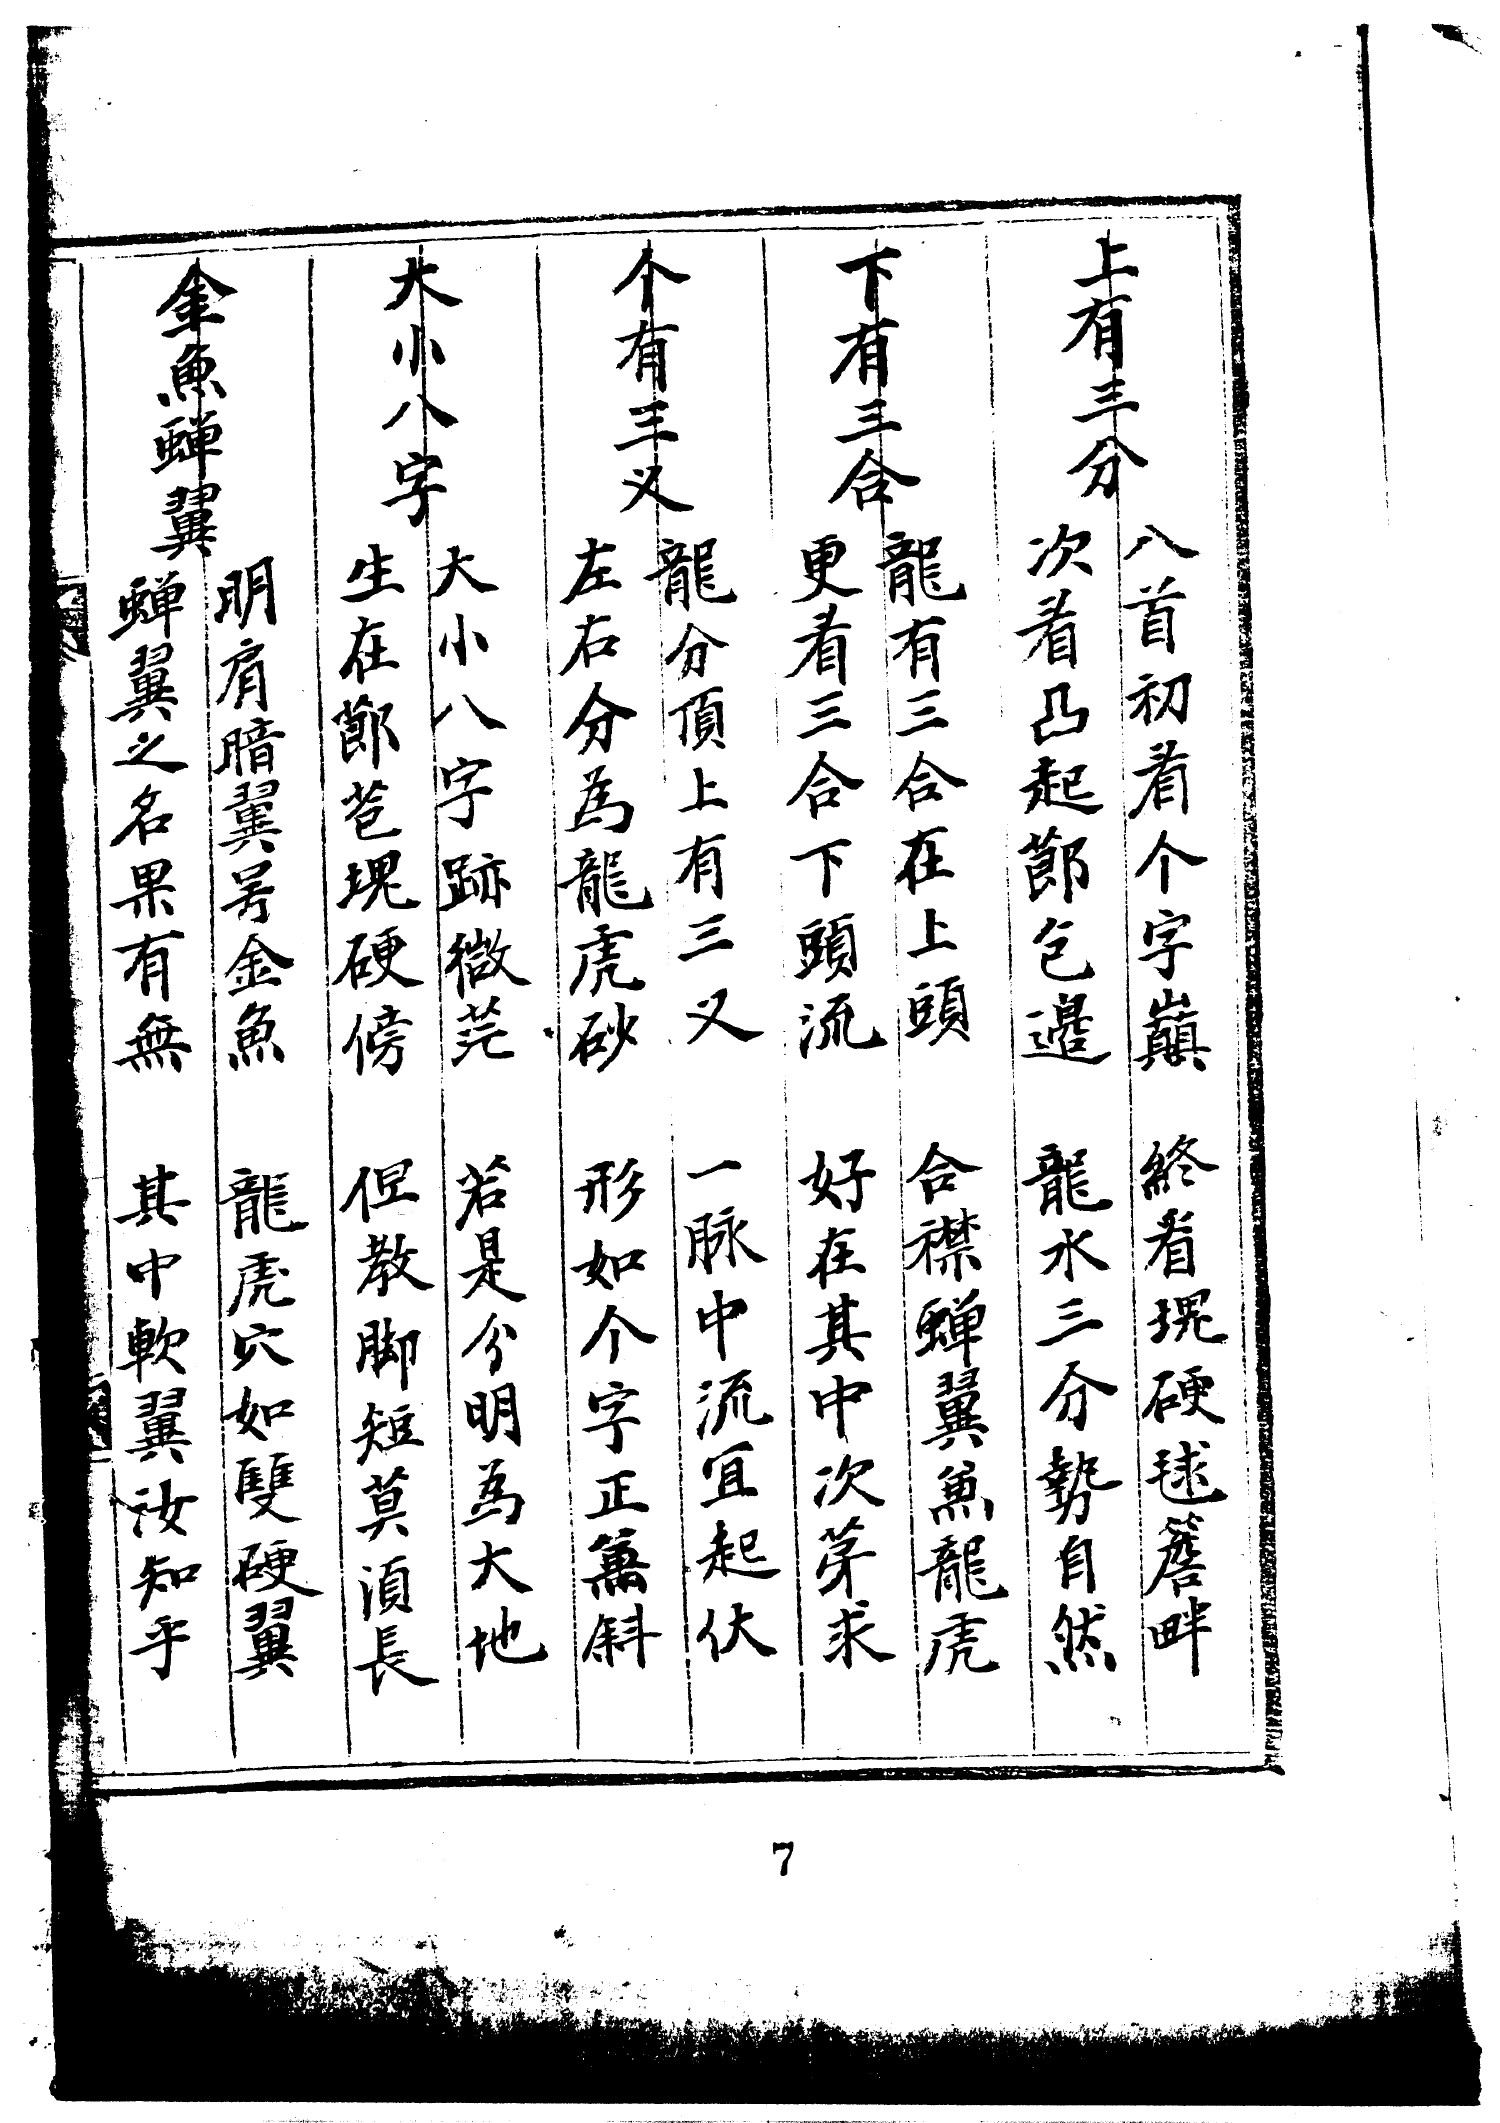 上有三分
八首初看个字巔　終看堍硬毬簷畔
次看凸起節包邊　龍水三分勢自然
下有三合
龍有三合在上頭　合襟蟬翼魚龍虎
更看三合下頭流　好在其中次第求
个有三义
龍分頂上有三义　一脉中流宜起伏
左右分為龍虎砂　形如个字正萬斜
大小八字
大小八字跡微茫　若是分明為大地
生在節苞堍硬傍　但教脚短莫湏長
金魚蟬翼
明肩暗翼号金魚　龍虎穴如雙硬翼
蟬翼之名果有無　其中軟翼汝知乎
7